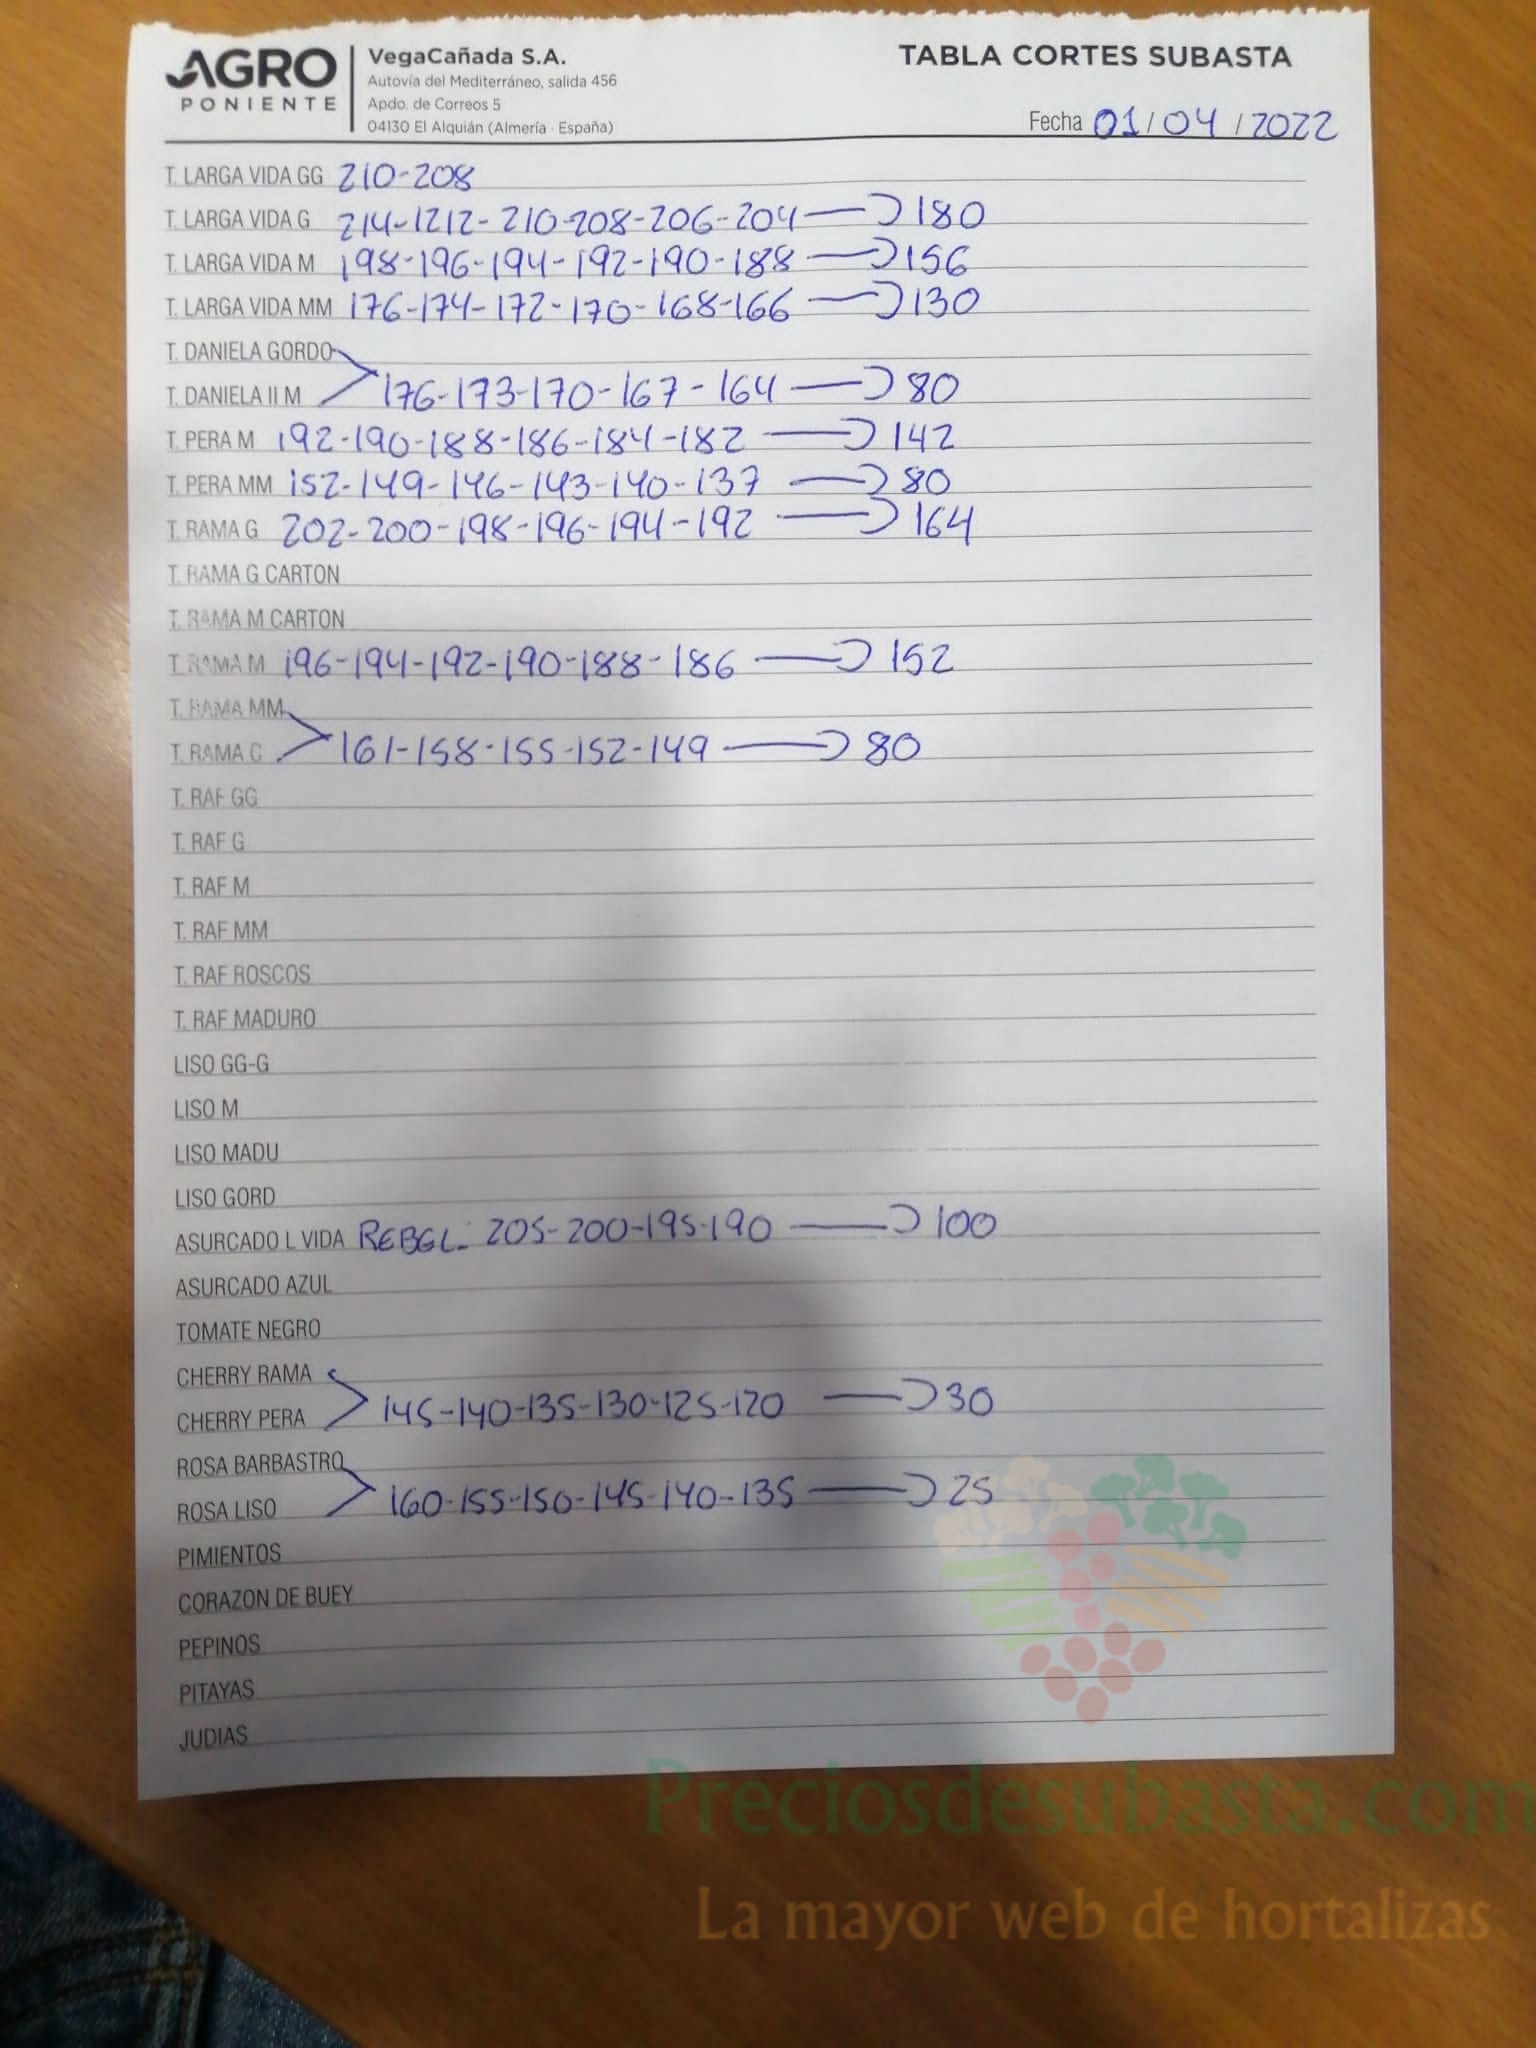 AGRO
PONIENTE
VegaCañada S.A.
Autovía del Mediterráneo, salida 456
Apdo. de Correos 5
04130 El Alquián (Almería · España)
TABLA CORTES SUBASTA
Fecha 01/04/2022
T. LARGA VIDA GG 210-208
T. LARGA VIDA G 214-1212-210-208-206-204 180
T. LARGA VIDA M 198-196-194-192-190-188 156
T. LARGA VIDA MM 176-174-172-170-168-166 130
T. DANIELA GORDO
T. DANIELA II M 176-173-170-167-164 80
T. PERA M 192-190-188-186-184-182 142
T. PERA MM 152-149-146-143-140-137 80
T. RAMA G 202-200-198-196-194-192 164
T. RAMA G CARTON
T. RAMA M CARTON
T. RAMA M 196-194-192-190-188-186 152
T. RAMA MM
T. RAMA C 161-158-155-152-149 80
T. RAF GG
T. RAF G
T. RAF M
T. RAF MM
T. RAF ROSCOS
T. RAF MADURO
LISO GG-G
LISO M
LISO MADU
LISO GORD
ASURCADO L VIDA REBEL- 205-200-195-190 100
ASURCADO AZUL
TOMATE NEGRO
CHERRY RAMA
CHERRY PERA 145-140-135-130-125-120 30
ROSA BARBASTRO
ROSA LISO 160-155-150-145-140-135 25
PIMIENTOS
CORAZON DE BUEY
PEPINOS
PITAYAS
JUDIAS
Preciosdesubasta.com
La mayor web de hortalizas